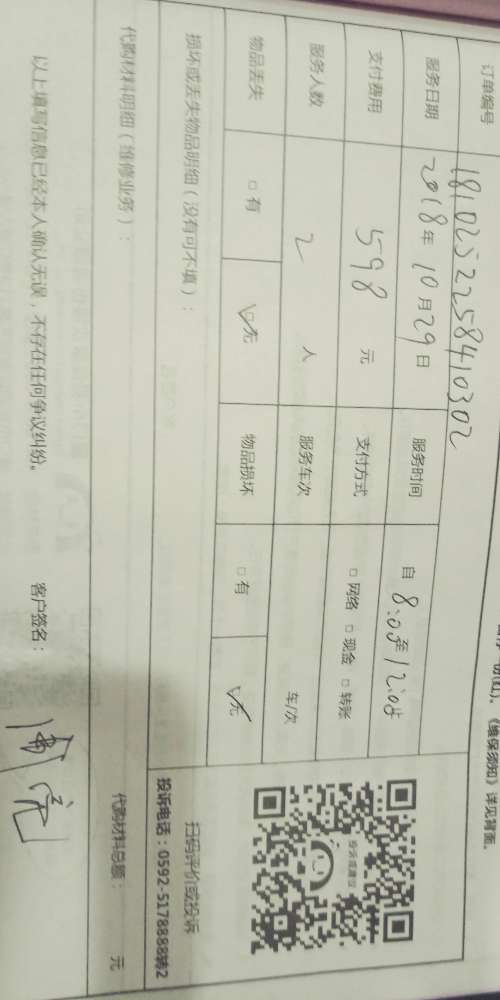 《维保须知》详见背面。
订单编号 1810252258410302
服务日期 2018年10月29日 服务时间 自8:05至12:05
支付费用 598元 支付方式 □网络 □现金 □转账
服务人数 2人 服务车次 车/次
物品丢失 □有 ☑无 物品损坏 □有 ☑无
损坏或丢失物品明细（没有可不填）：
扫码评价或投诉
投诉电话：0592-5178888转2
代购材料明细（维修业务）：
代购材料总额： 元
以上填写信息已经本人确认无误，不存在任何争议纠纷。 客户签名：